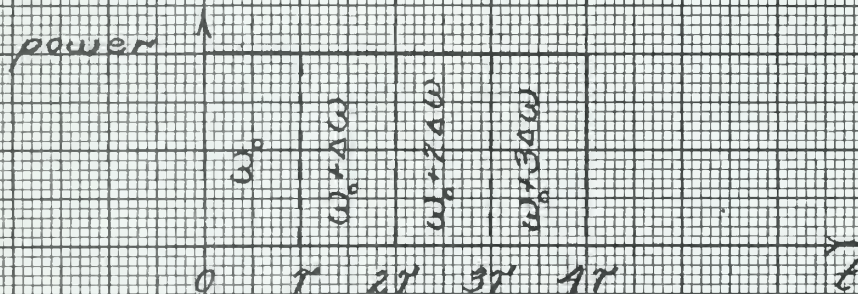 power
ω₀
ω₀+Δω
ω₀+2Δω
ω₀+3Δω
0 τ 2τ 3τ 4τ t